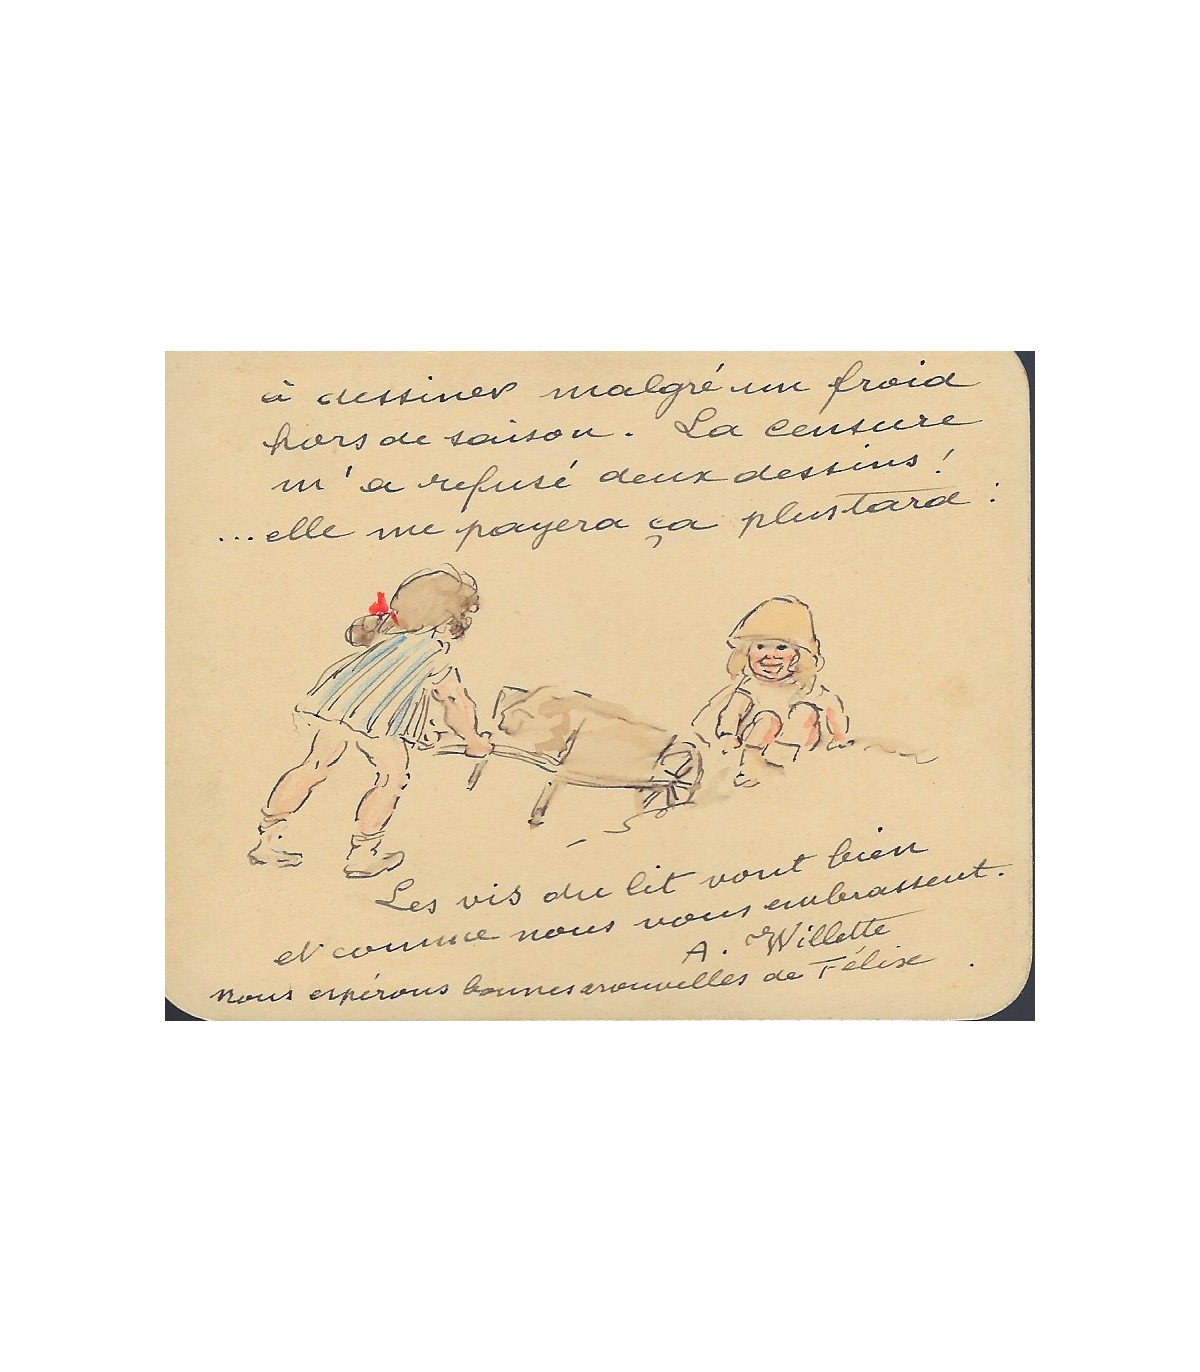 à dessiner malgré un froid
hors de saison. La censure
m'a refusé deux dessins !
...elle me payera ça plus tard :
Les vis du lit vont bien
et comme nous vous embrassent.
A. Willette
nous espérons bonnes nouvelles de Félix.